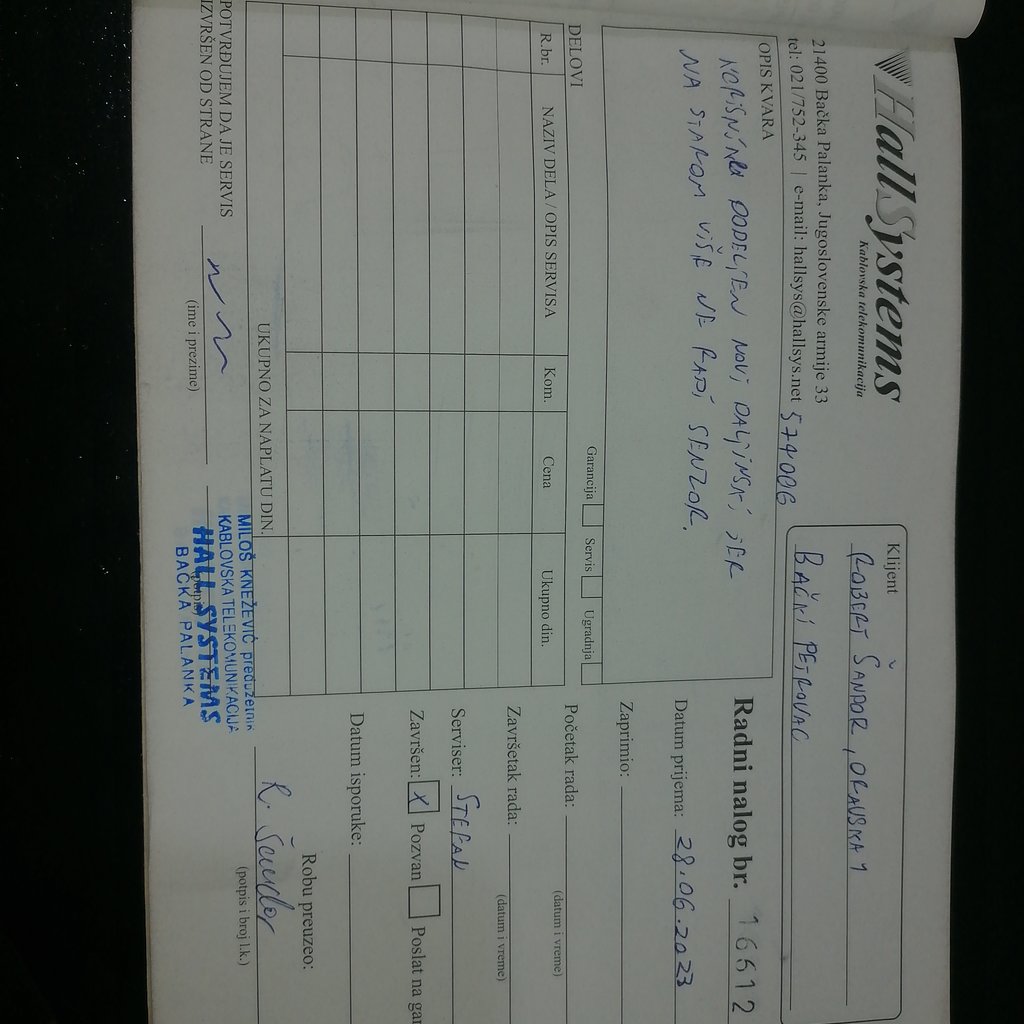 HallSystems
Kablovska telekomunikacija
21400 Bačka Palanka, Jugoslovenske armije 33
tel: 021/752-345 | e-mail: hallsys@hallsys.net
574006
Klijent
ROBERT ŠANDOR, ORAVSKA 1
BAČKI PETROVAC
OPIS KVARA
DODELJEN NOVI DALJINSKI JER
NA STAROM VIŠE NE RADI SENZOR.
Garancija Servis Ugradnja
Radni nalog br. 16612
Datum prijema: 28.06.2023
Zaprimio:
Početak rada:
(datum i vreme)
Završetak rada:
(datum i vreme)
Serviser: STEFAN
Završen: X Pozvan Poslat na gar
Datum isporuke:
DELOVI
R.br. NAZIV DELA / OPIS SERVISA Kom. Cena Ukupno din.
UKUPNO ZA NAPLATU DIN.
POTVRĐUJEM DA JE SERVIS
IZVRŠEN OD STRANE
(ime i prezime)
MILOŠ KNEŽEVIĆ preduzetnik
KABLOVSKA TELEKOMUNIKACIJA
HALL SYSTEMS
BAČKA PALANKA
Robu preuzeo:
R. Šandor
(potpis i broj l.k.)